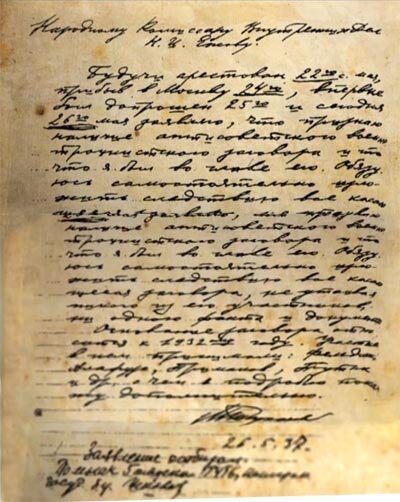 Народному Комиссару Внутренних Дел
Н. И. Ежову.
Будучи арестован 22го с. мая,
прибыв в Москву 24го, впервые
был допрошен 25го и сегодня
26го мая заявляю, что признаю
наличие антисоветского воен-
троцкистского заговора и то
что я был во главе его. Обязу-
юсь самостоятельно изло-
жить следствию все каса-
ющееся заговора,
наличие антисоветского воен-
троцкистского заговора и то
что я был во главе его. Обязу-
юсь самостоятельно изло-
жить следствию все каса-
ющееся заговора, не утаивая
никого из его участников,
ни одного факта и документа
Основание заговора отно-
сится к 1932му году. Участие
в нем принимали: Фельдман,
Алафузо, Примаков, Путна
и др., о чем я подробно пока-
жу дополнительно.
Тухачевский
26.5.37.
Заявление отобрал: